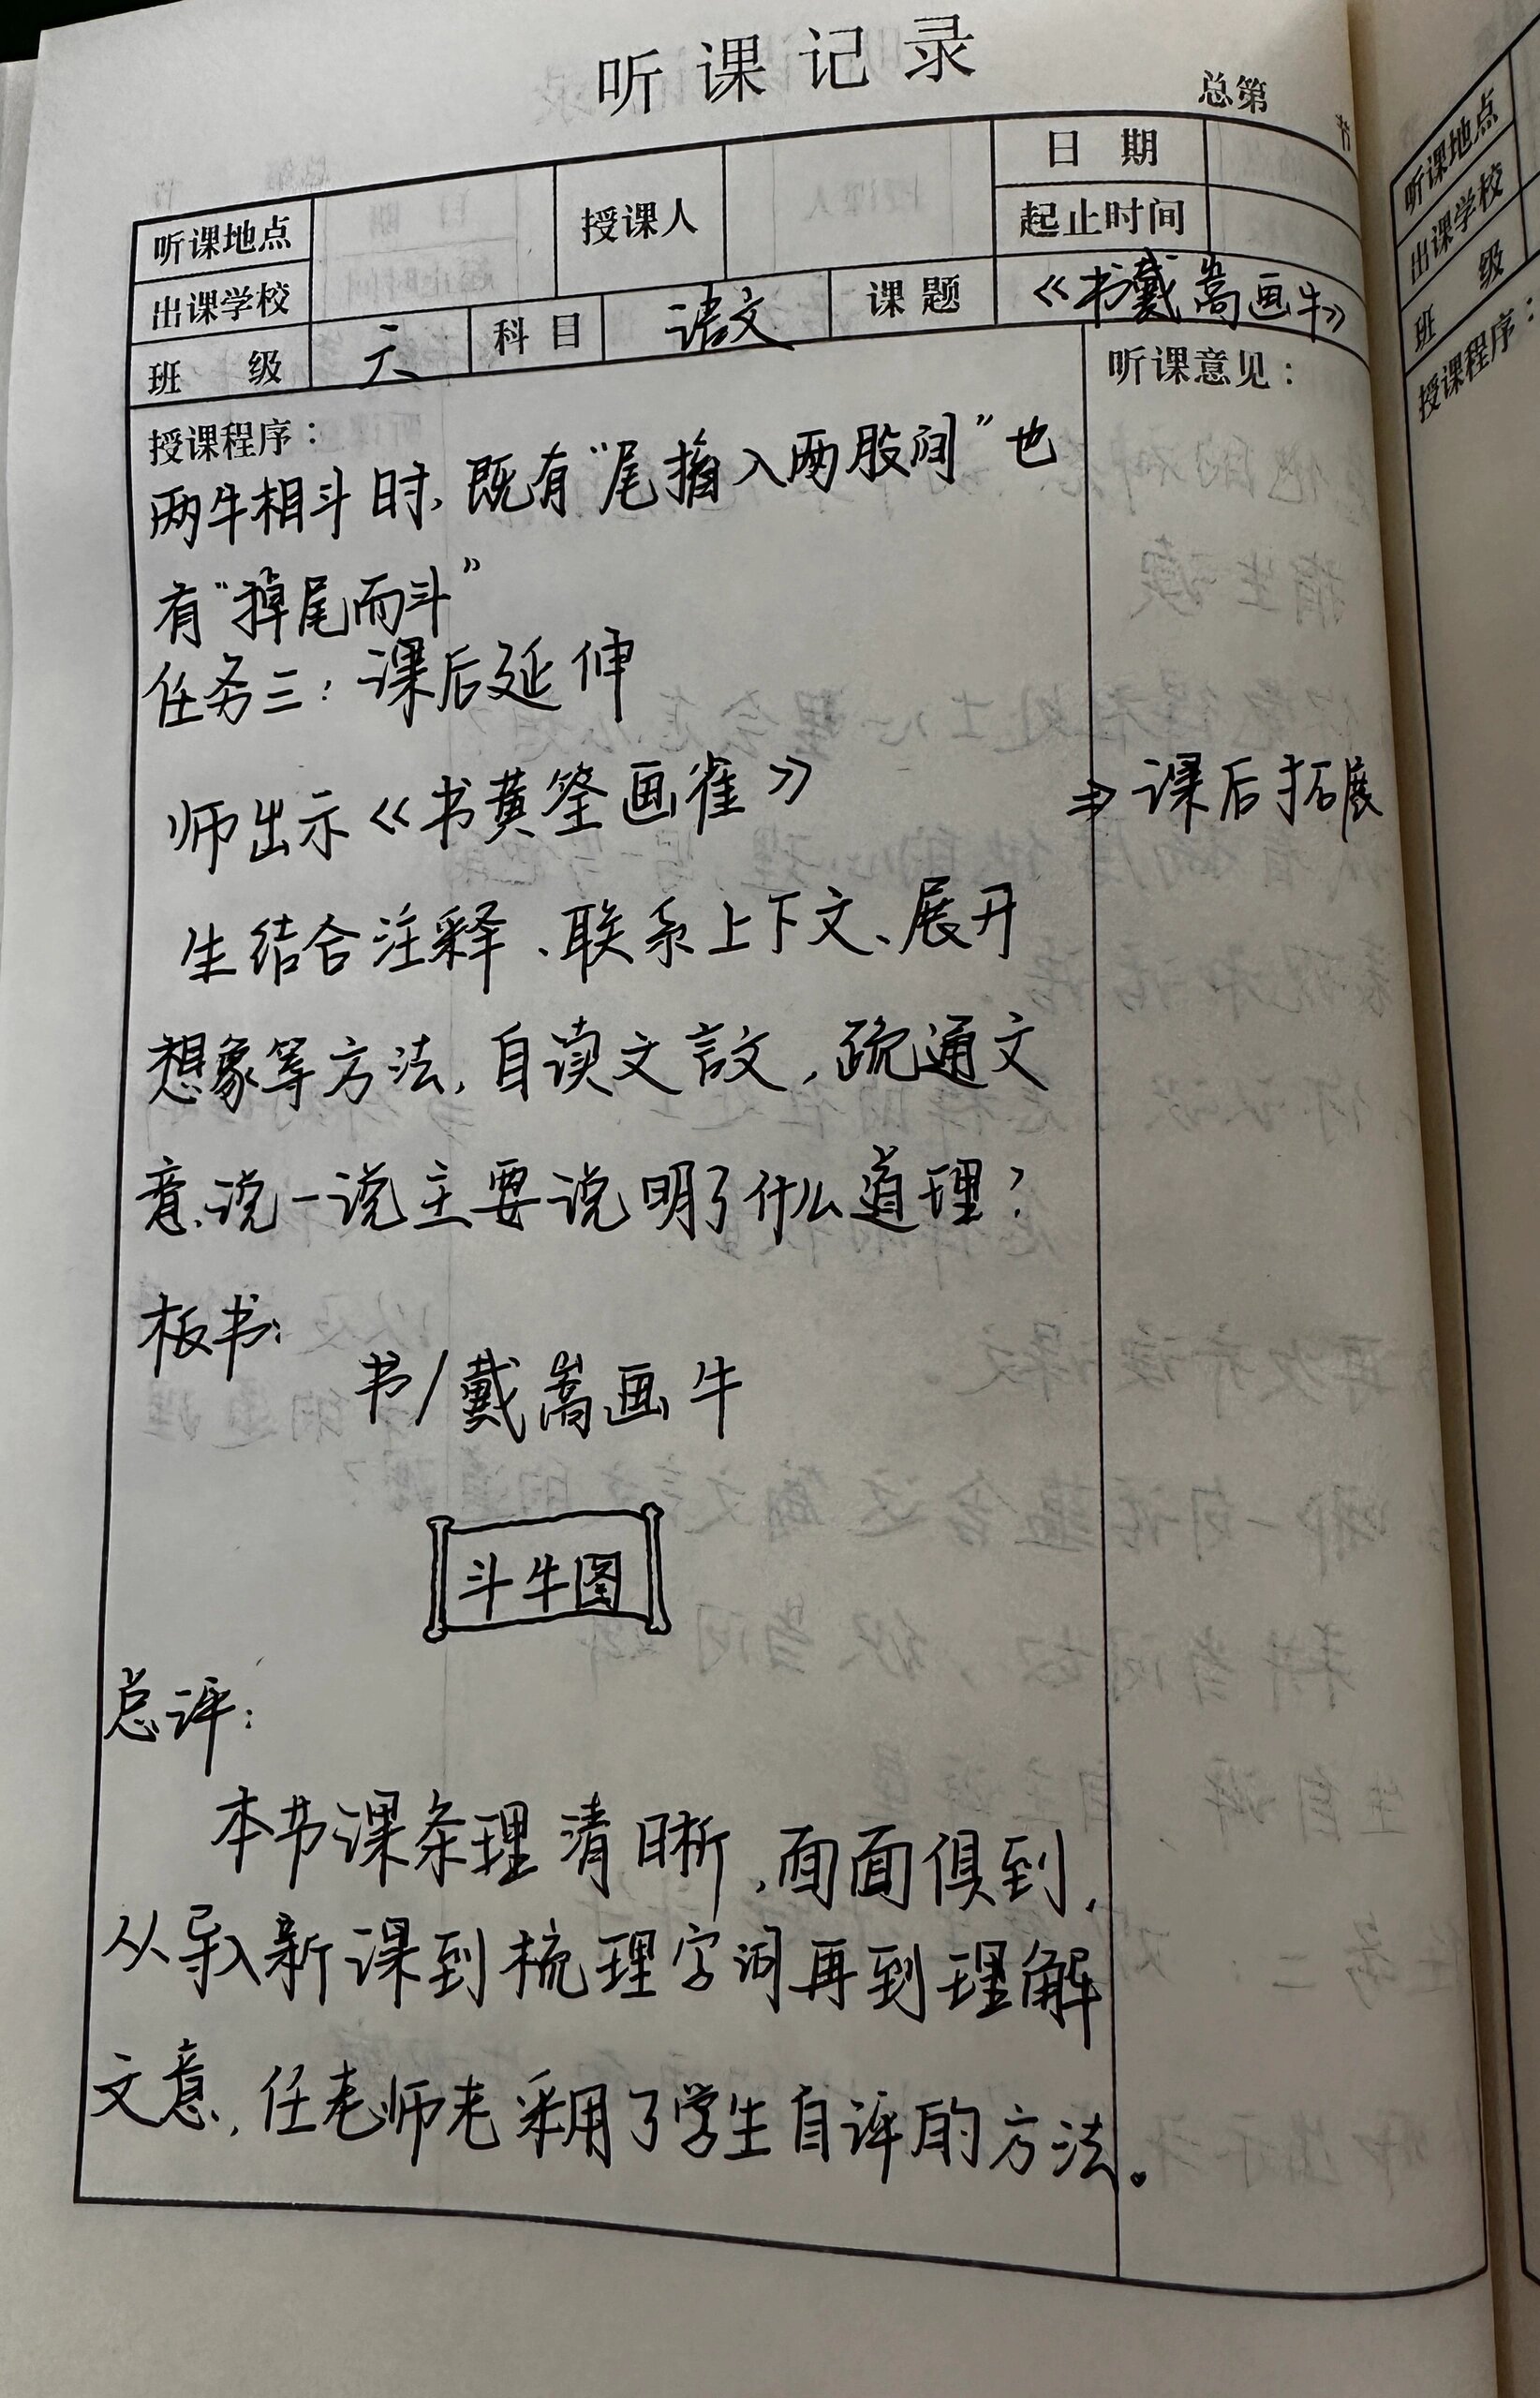 听课记录
总第 节
听课地点 授课人 日期
出课学校 起止时间
班级 六 科目 语文 课题 《书戴嵩画牛》
授课程序： 听课意见：
两牛相斗时，既有“尾搐入两股间”也
有“掉尾而斗”
任务三：课后延伸
师出示《书黄筌画雀》 ⇒课后拓展
生结合注释、联系上下文、展开
想象等方法，自读文言文，疏通文
意，说一说主要说明了什么道理？
板书：
书/戴嵩画牛
斗牛图
总评：
本节课条理清晰，面面俱到，
从导入新课到梳理字词再到理解
文意，任老师老采用了学生自评的方法。
听课地点
出课学校
班 级
授课程序：